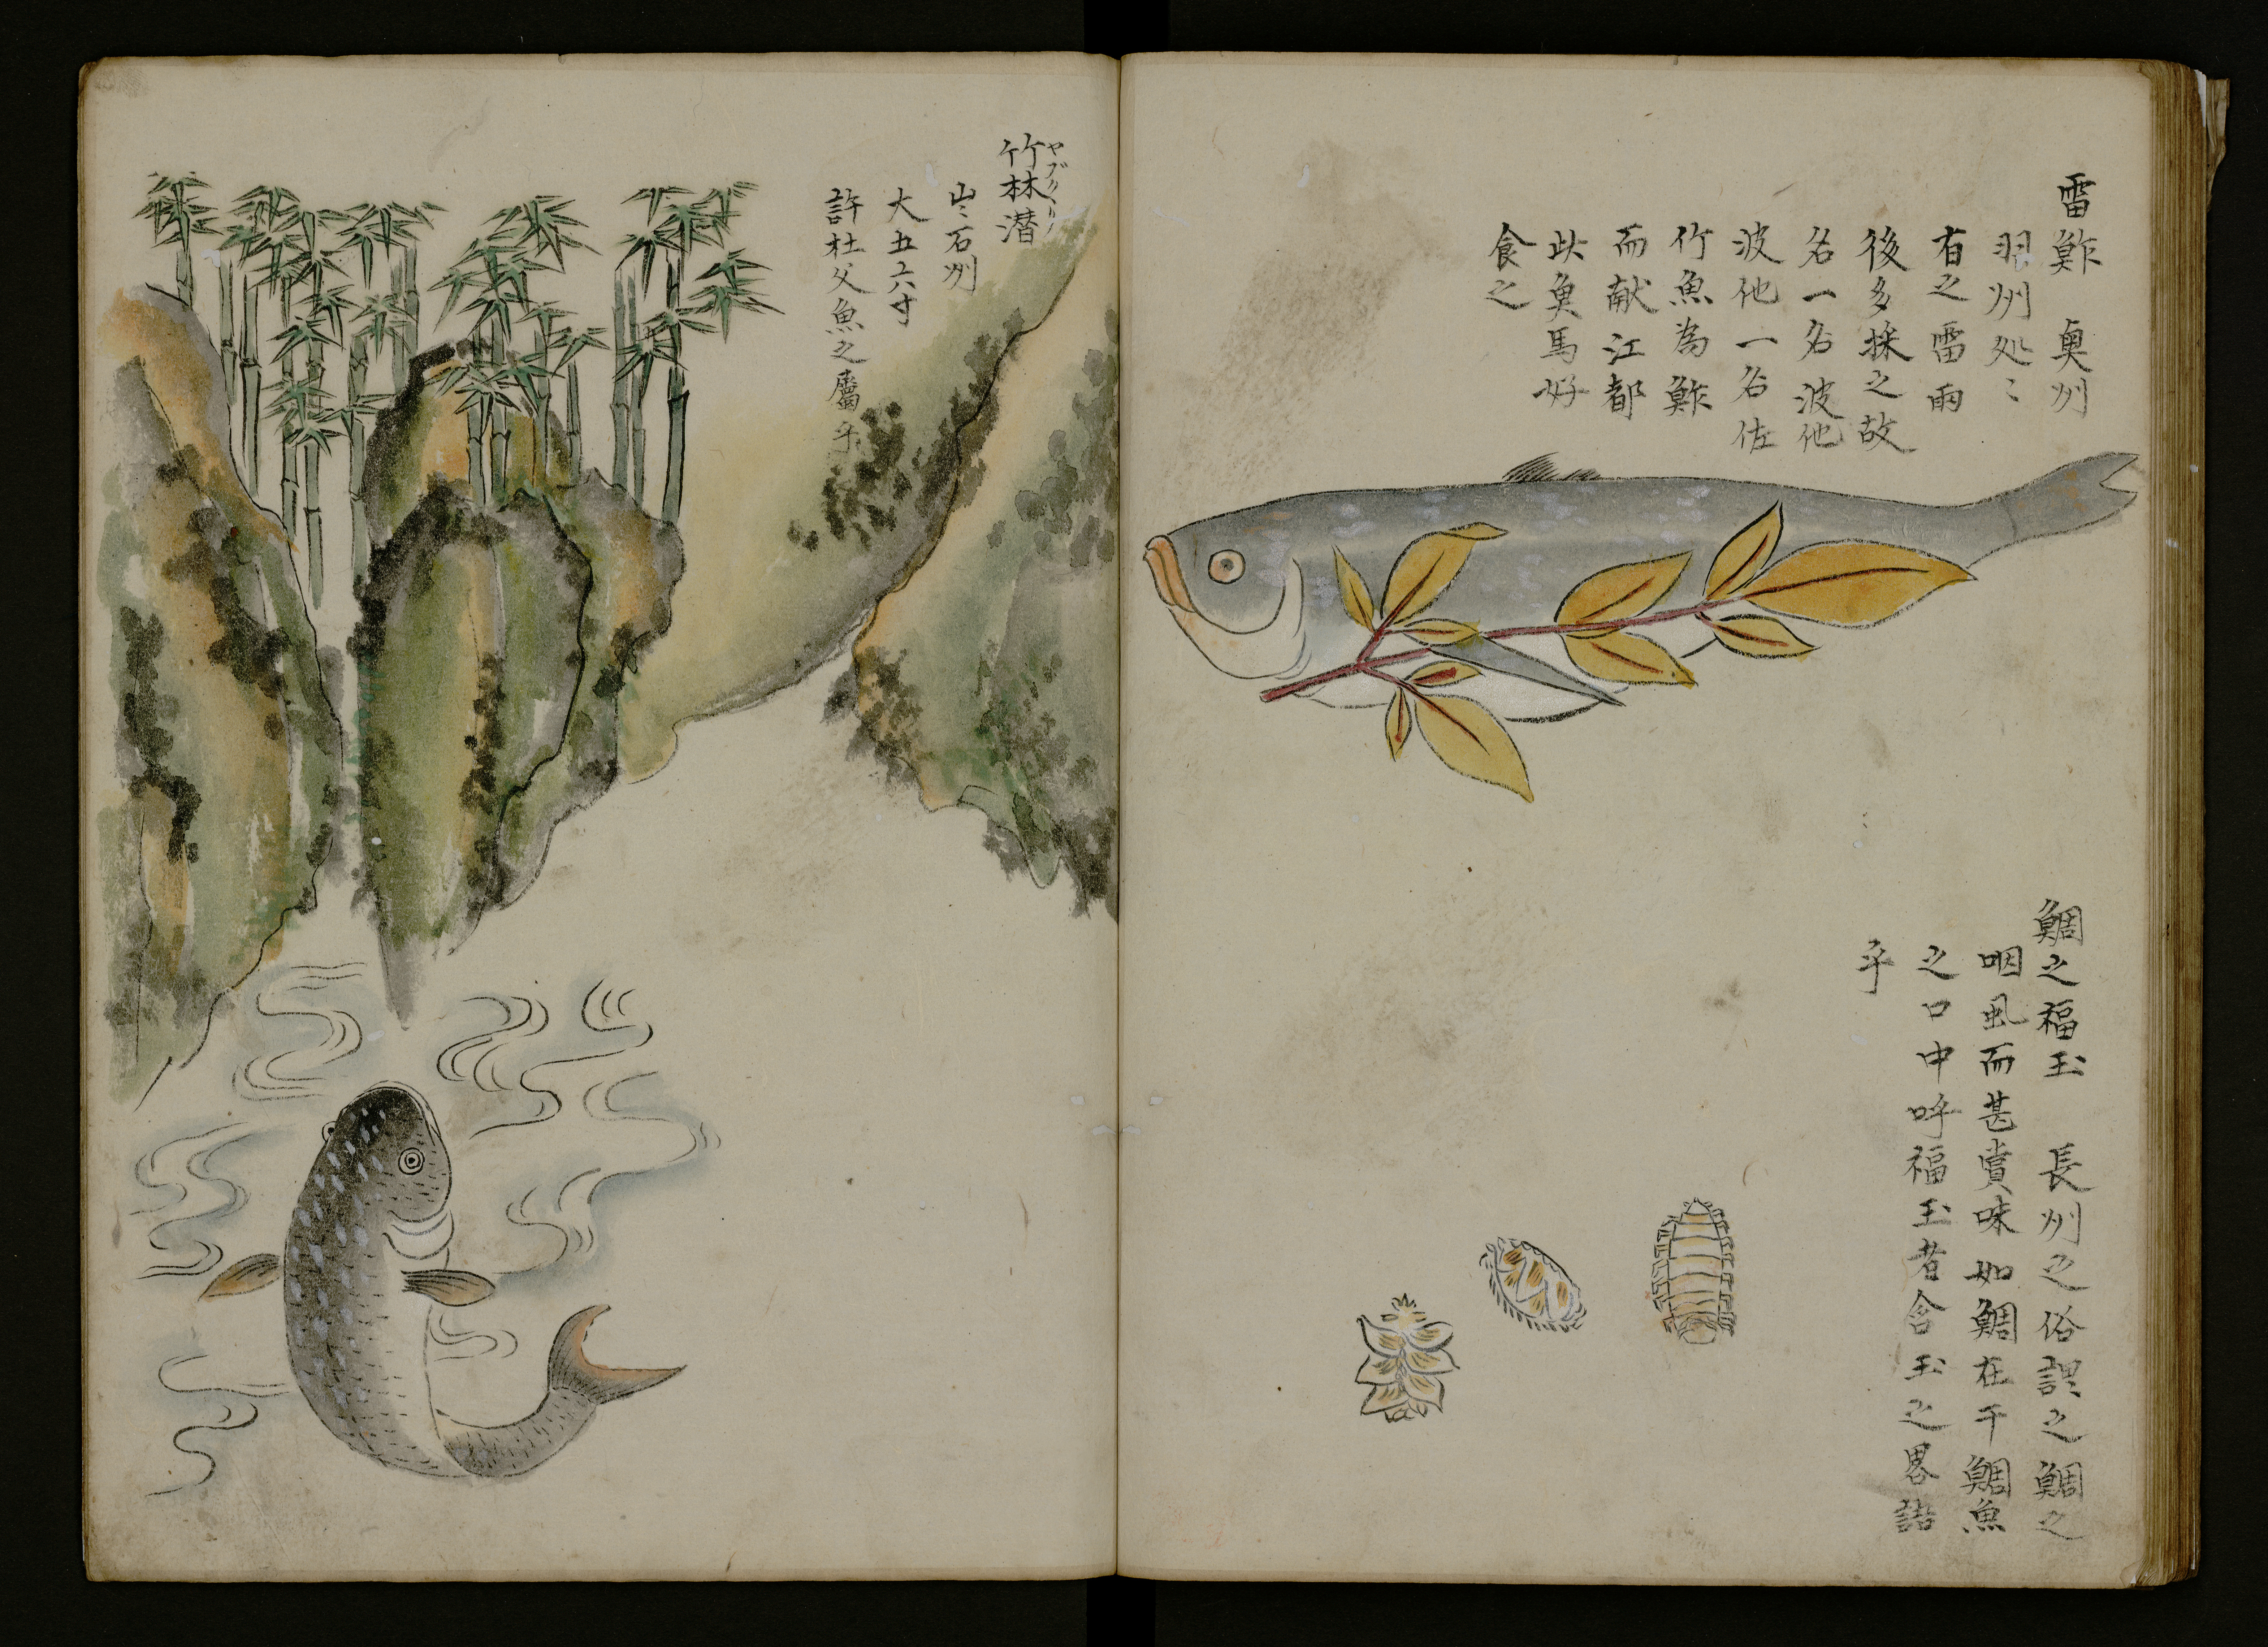 雷鮓 奥州
羽州処〻
有之雷雨
後多採之故
名一名波他
波他一名佐
竹魚為鮓
而献江都
此魚馬好
食之
鯛之福玉 長州之俗謂之鯛之
咽虱而甚賞味如鯛在干鯛魚
之口中呼福玉者含玉之畧語
乎
竹林潜
ヤブクヾリ
出石州
大五六寸
許杜父魚之屬乎